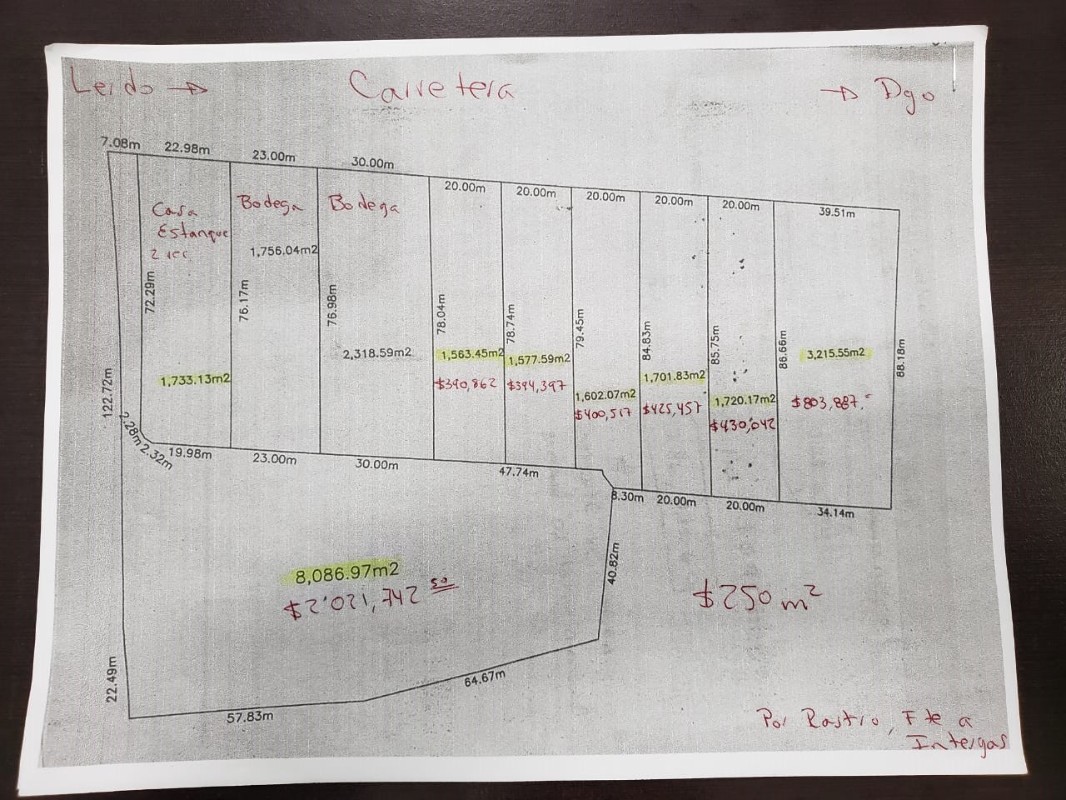 Lerdo → Carretera → Dgo
7.08m 22.98m 23.00m 30.00m
20.00m 20.00m 20.00m 20.00m 20.00m 39.51m
Casa
Estanque
Bodega
Bodega
1,756.04m2
72.29m 76.17m 76.98m 78.04m 78.74m 79.45m 84.83m 85.75m 86.66m 88.18m
2,318.59m2
1,563.45m2
$390,862
1,577.59m2
$394,397
1,602.07m2
$400,517
1,701.83m2
$425,457
1,720.17m2
$430,042
3,215.55m2
$803,887.-
1,733.13m2
122.72m
2.32m 19.98m 23.00m 30.00m 47.74m
8.30m 20.00m 20.00m 34.14m
40.82m
8,086.97m2
$2'021,742 50
$250 m2
22.49m
57.83m
64.67m
Por Rastro, Fte a
Intergas